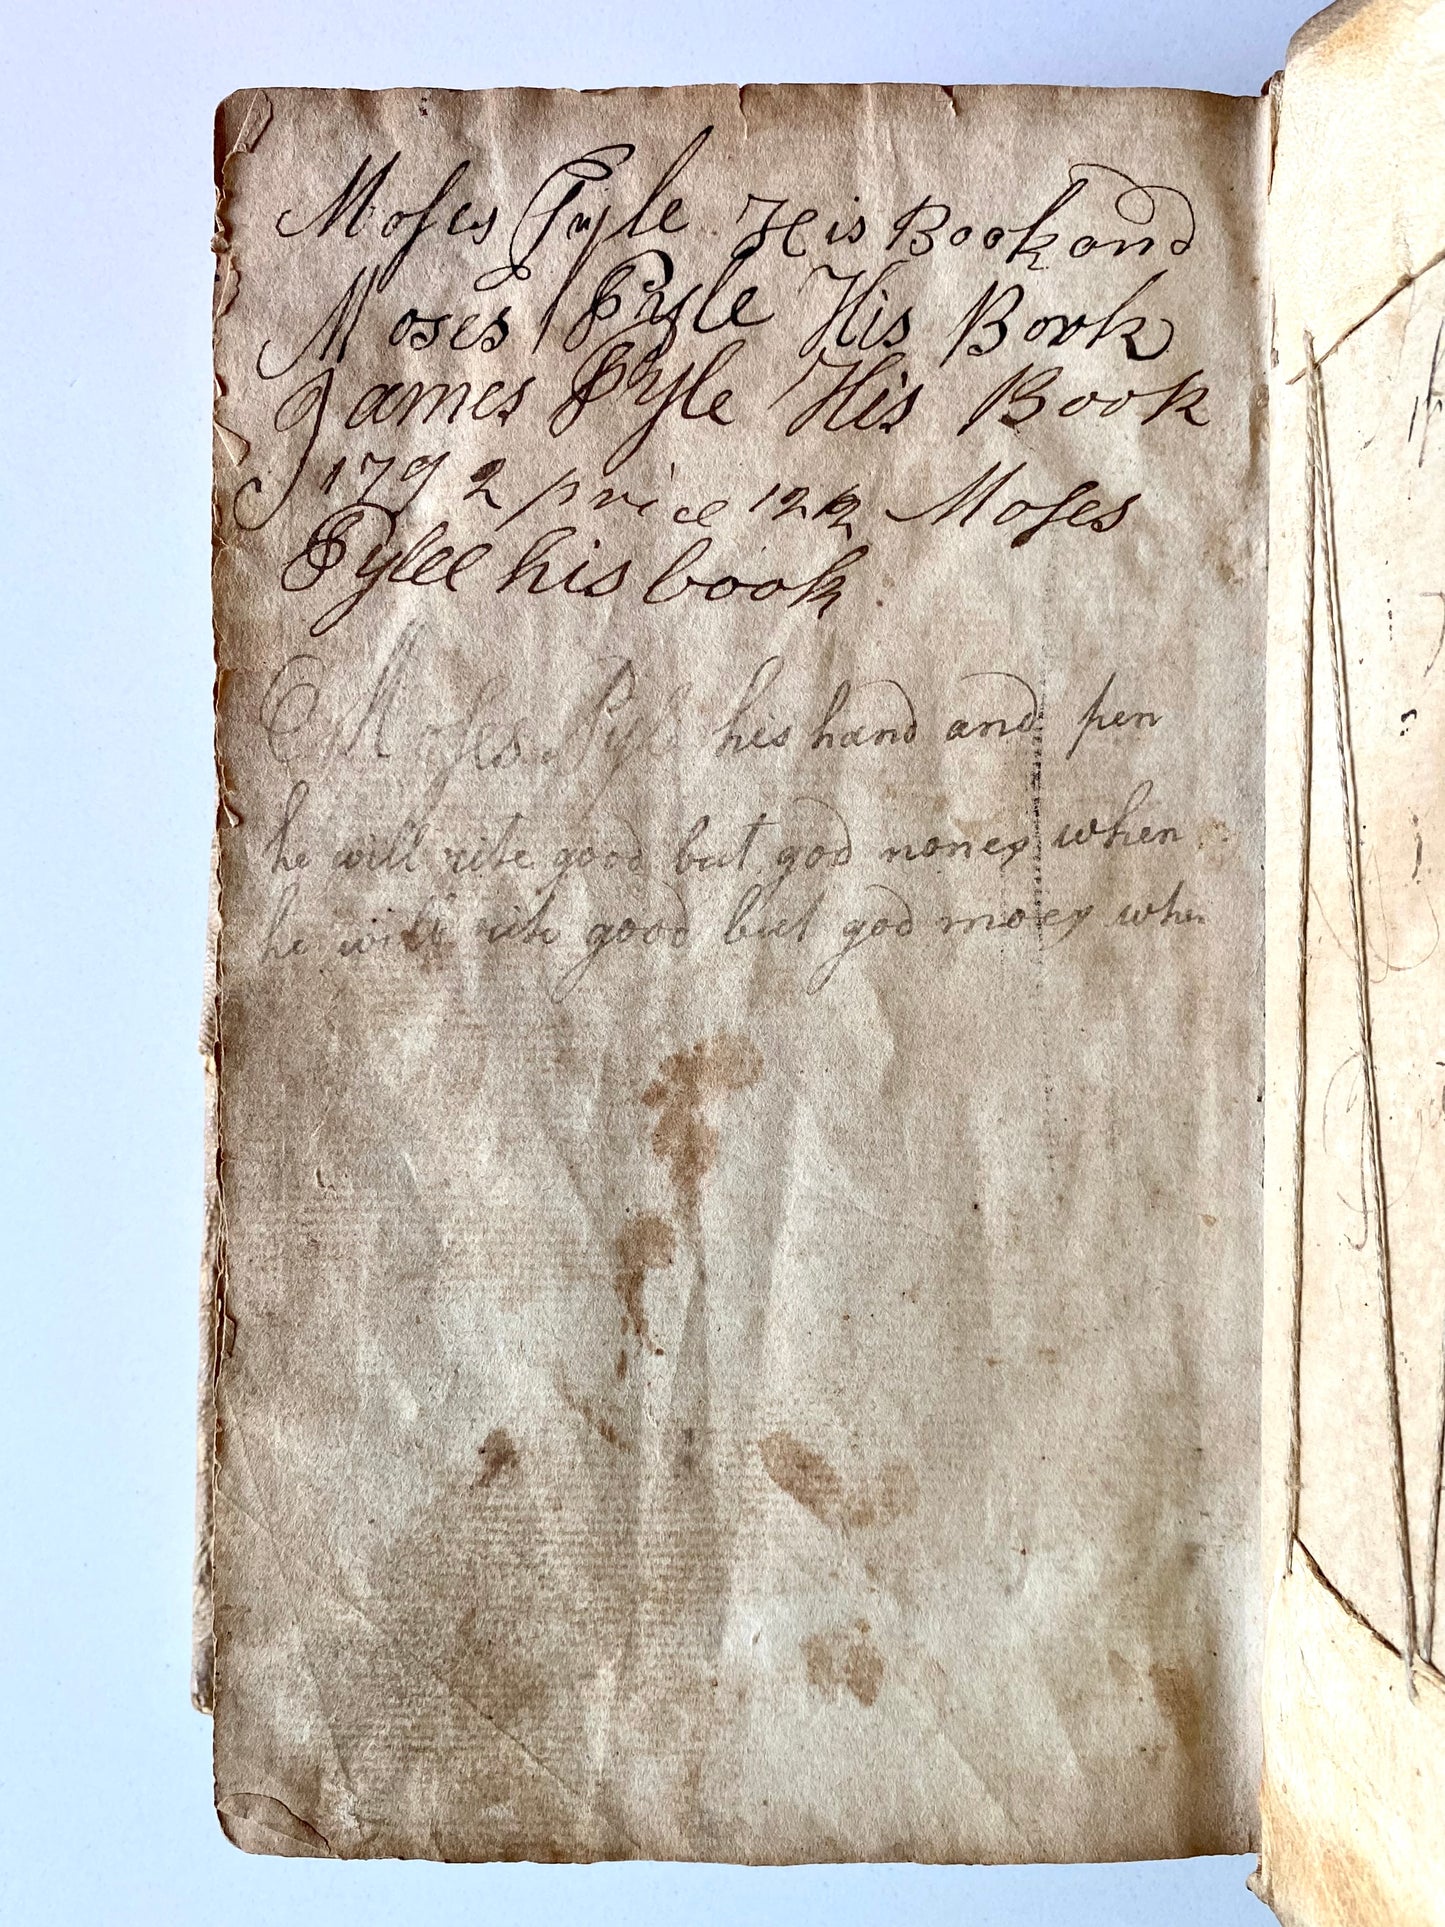 Moſes Pyle His Book and
Moses Pyle His Book
James Pyle His Book
1792 price 12 Moſes
Pylee his book
Moſes Pyle his hand and pen
he will rite good but god noney when
he will rite good but god moey when